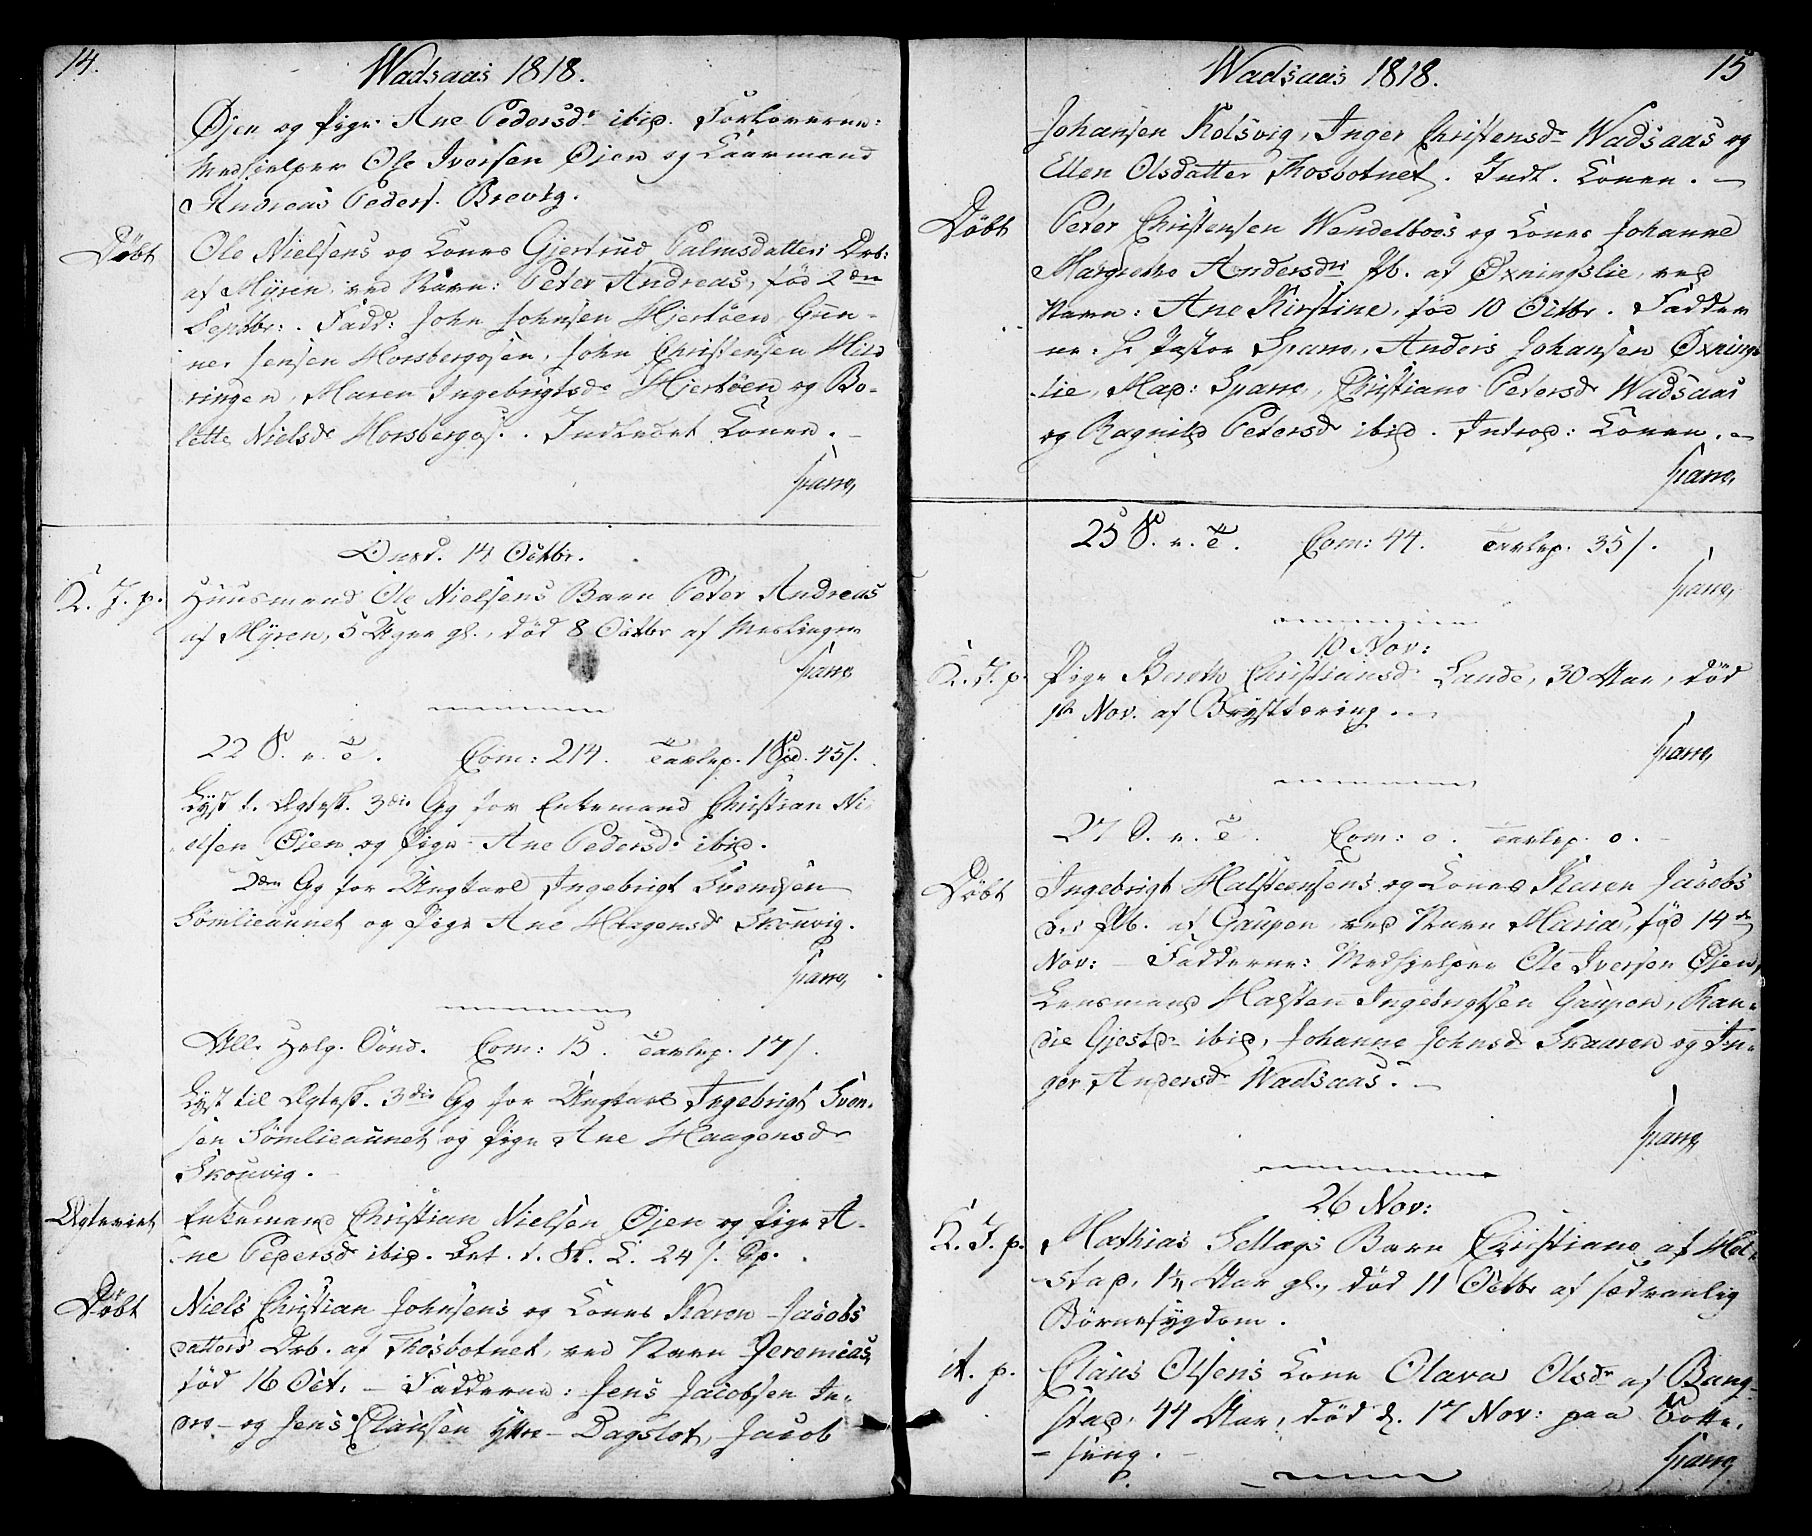 14.
Wadsaas 1818.
Øjen og Pige Ane Pedersdr ibid. Forloverne:
Medhjelper Ole Iversen Øjen og Kaarmand
Andreas Peders. Brevig.
Døbt
Ole Nielsens og Kones Gjertrud Palmsdatters Drb:
af Myren, ved Navn: Peter Andreas, fød 2den
Septbr: . Fadd: John Johnsen Hjertöen, Gun-
ner Jensen Horsbergosen, John Christensen Hild
ringen, Maren Ingebrigtsdr Hjertöen og Bo-
lette Nielsdr Horsbergos. . Indledet Konen. -
Spang,
Onsd. 14 Octbr.
K. J. p.
Huusmand Ole Nielsens Barn Peter Andreas
af Myren, 5 Uger gl., død 8 Octbr af Meslinger
Spang
22 S. e. T. Com: 214. Tavlep. 1 Spd. 45/.
Lyst t. Ægtesk. 3die Gg for Enkemand Christian Ni-
elsen Øjen og Pige Ane Pedersdr ibid.
2den Gg for Ungkarl Ingebrigt Svendsen
Sömlieaunet og Pige Ane Haagensdr Skouvig.
Spang,
All. Helg. Sönd. Com: 15. Tavlep. 17/.
Lyst til Ægtesk. 3die Gg for Ungkarl Ingebrigt Sven-
sen Sömlieaunet og Pige Ane Haagensdr
Skouvig.
Ægteviet
Enkemand Christian Nielsen Øjen og Pige A-
ne Pedersdr ibid. Bet. t. St. L. 24/. Sp.
Døbt
Niels Christian Johnsens og Kones Karen Jacobs
datters Drb. af Fosbotnet, ved Navn Jeremias,
fød 16 Oct. - Fadderne: Jens Jacobsen In-
dre - og Jens Clausen Yttre - Dagslot, Jacob
Wadsaas 1818.
15
Johansen Kolsvig, Inger Christensdr Wadsaas og
Ellen Olsdatter Fosbotnet. Indl. Konen. -
Døbt
Peter Christensen Wendelboes og Kones Johanne
Margrethe Andersdrs Pb. af Øxningslie, ved
Navn: Ane Kirstine, fød 10 Octbr. Fadder
ne: H Pastor Spang, Anders Johansen Øxnings
lie, Mad: Spang, Christiane Petersdr Wadsaas
og Ragnild Petersdr ibid. Introd: Konen. -
Spang,
25 S. e. T. Com: 44. Tavlep. 35/.
Spang,
10 Nov:
K. J. p.
Pige Bereth Christiansdr Lande, 30 Aar, død
1ste Nov. af Brysttæring. -
Spang,
27 S. e. T. Com: 0. Tavlep. 0. -
Døbt
Ingebrigt Halsteensens og Kones Karen Jacobs
drs Pb. af Gaupen ved Navn Maria, fød 14de
Nov: - Fadderne: Medhjelper Ole Iversen Øjen,
Lensmand Halsten Ingebrigtsen Gaupen, Ran-
die Gjestdr ibid, Johanne Johnsdr Skaaren og In-
ger Andersdr Wadsaas. -
Spang,
26 Nov:
K. J. p.
Mathias Sellægs Barn Christiane af Hol-
stad, 1 1/4 Aar gl., død 11 Octbr af sædvanlig
Börnesygdom.
it. p.
Claus Olsens Kone Olava Olsdr af Bang-
stad, 44 Aar, død d. 17 Nov: paa Sotte-
- seng. -
Spang